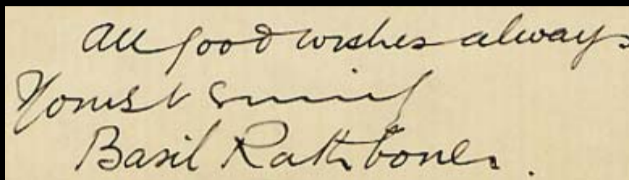 All good wishes always
Yours
Basil Rathbone.